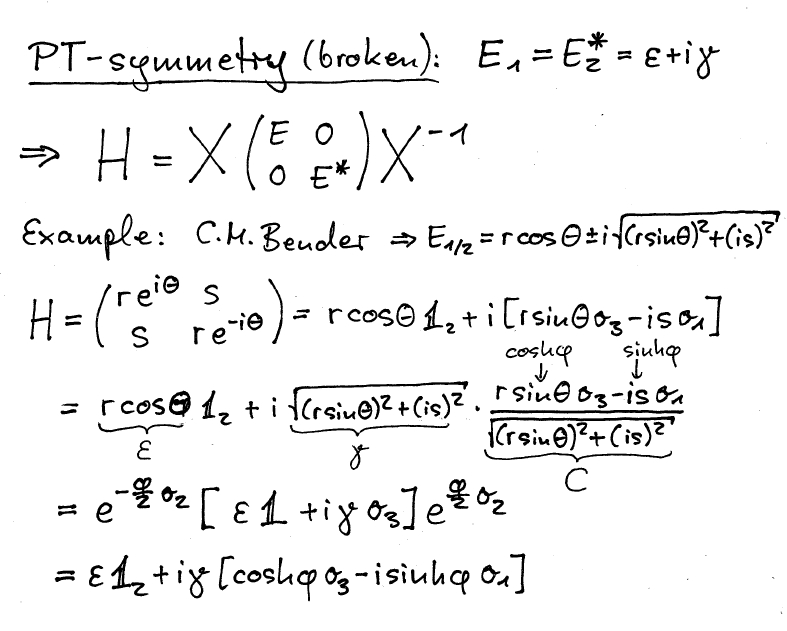 PT-symmetry (broken): E₁ = E₂* = ε+iγ
⇒ H = X (E 0 0 E*) X⁻¹
Example: C.M. Bender ⇒ E₁/₂ = r cos θ ± i√((r sinθ)²+(is)²)
H = (re^{iθ} s s re^{-iθ}) = r cosθ 𝟙₂ + i [r sinθ σ₃ - is σ₁]
coshφ sinhφ
↓ ↓
= r cosθ 𝟙₂ + i √((r sinθ)²+(is)²) · (r sinθ σ₃ - is σ₁)/√((r sinθ)²+(is)²)
ε γ C
= e^{-φ/2 σ₂} [ε 𝟙 + iγ σ₃] e^{φ/2 σ₂}
= ε 𝟙₂ + iγ [coshφ σ₃ - i sinhφ σ₁]